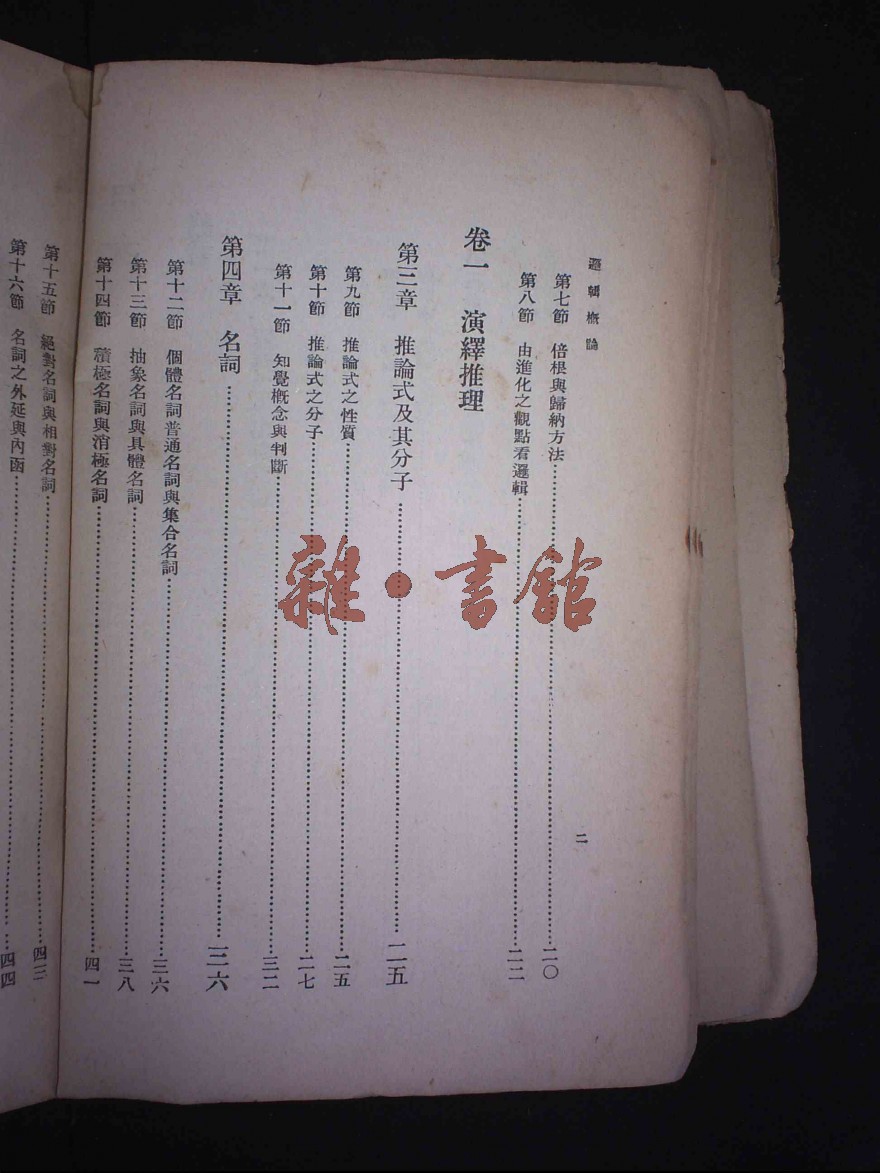 邏輯概論
第七節　倍根與歸納方法……二〇
第八節　由進化之觀點看邏輯……二二
卷一　演繹推理
第三章　推論式及其分子……二五
第九節　推論式之性質……二五
第十節　推論式之分子……二七
第十一節　知覺概念與判斷……三二
第四章　名詞……三六
第十二節　個體名詞普通名詞與集合名詞……三六
第十三節　抽象名詞與具體名詞……三八
第十四節　積極名詞與消極名詞……四一
第十五節　絕對名詞與相對名詞……四三
第十六節　名詞之外延與內函……四四
二
雜・書館